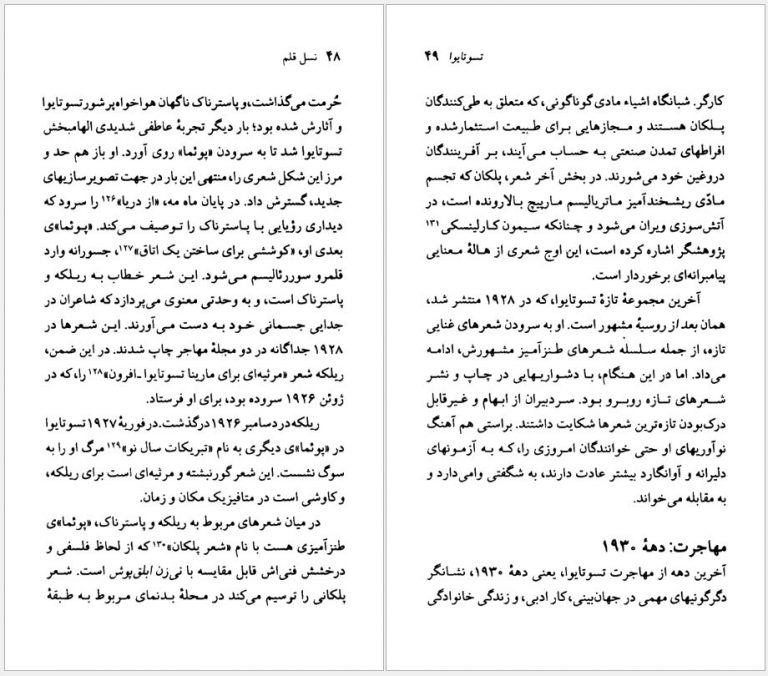 ۴۸ نسل قلم
حُرمت می‌گذاشت، و پاسترناک ناگهان هواخواه پرشور تسوتایوا
و آثارش شده بود؛ بار دیگر تجربهٔ عاطفی شدیدی الهامبخش
تسوتایوا شد تا به سرودن «پوئما» روی آورد. او باز هم حد و
مرز این شکل شعری را، منتهی این بار در جهت تصویرسازیهای
جدید، گسترش داد. در پایان ماه مه، «از دریا»۱۲۶ را سرود که
دیداری رؤیایی با پاسترناک را توصیف می‌کند. «پوئما»ی
بعدی او، «کوششی برای ساختن یک اتاق»۱۲۷، جسورانه وارد
قلمرو سوررئالیسم می‌شود. این شعر خطاب به ریلکه و
پاسترناک است، و به وحدتی معنوی می‌پردازد که شاعران در
جدایی جسمانی خود به دست می‌آورند. این شعرها در
۱۹۲۸ جداگانه در دو مجلهٔ مهاجر چاپ شدند. در این ضمن،
ریلکه شعر «مرثیه‌ای برای مارینا تسوتایوا ـ افرون»۱۲۸ را، که در
ژوئن ۱۹۲۶ سروده بود، برای او فرستاد.
ریلکه در دسامبر ۱۹۲۶ درگذشت. در فوریهٔ ۱۹۲۷ تسوتایوا
در «پوئما»ی دیگری به نام «تبریکات سال نو»۱۲۹ مرگ او را به
سوگ نشست. این شعر گورنبشته و مرثیه‌ای است برای ریلکه،
و کاوشی است در متافیزیک مکان و زمان.
در میان شعرهای مربوط به ریلکه و پاسترناک، «پوئما»ی
طنزآمیزی هست با نام «شعر پلکان»۱۳۰ که از لحاظ فلسفی و
درخشش فنی‌اش قابل مقایسه با نی‌زن ابلق‌پوش است. شعر
پلکانی را ترسیم می‌کند در محلهٔ بدنمای مربوط به طبقهٔ
تسوتایوا ۴۹
کارگر. شبانگاه اشیاء مادی گوناگونی، که متعلق به طی‌کنندگان
پلکان هستند و مجازهایی برای طبیعت استثمارشده و
افراطهای تمدن صنعتی به حساب می‌آیند، بر آفرینندگان
دروغین خود می‌شورند. در بخش آخر شعر، پلکان که تجسم
مادّی ریشخندآمیز ماتریالیسم مارپیچ بالارونده است، در
آتش‌سوزی ویران می‌شود و چنانکه سیمون کارلینسکی۱۳۱
پژوهشگر اشاره کرده است، این اوج شعری از هالهٔ معنایی
پیامبرانه‌ای برخوردار است.
آخرین مجموعهٔ تازهٔ تسوتایوا، که در ۱۹۲۸ منتشر شد،
همان بعد از روسیهٔ مشهور است. او به سرودن شعرهای غنایی
تازه، از جمله سلسله شعرهای طنزآمیز مشهورش، ادامه
می‌داد. اما در این هنگام، با دشواریهایی در چاپ و نشر
شعرهای تازه روبرو بود. سردبیران از ابهام و غیرقابل
درک‌بودن تازه‌ترین شعرها شکایت داشتند. براستی هم آهنگ
نوآوریهای او حتی خوانندگان امروزی را، که به آزمونهای
دلیرانه و آوانگارد بیشتر عادت دارند، به شگفتی وامی‌دارد و
به مقابله می‌خواند.
مهاجرت: دههٔ ۱۹۳۰
آخرین دهه از مهاجرت تسوتایوا، یعنی دههٔ ۱۹۳۰، نشانگر
دگرگونیهای مهمی در جهان‌بینی، کار ادبی، و زندگی خانوادگی